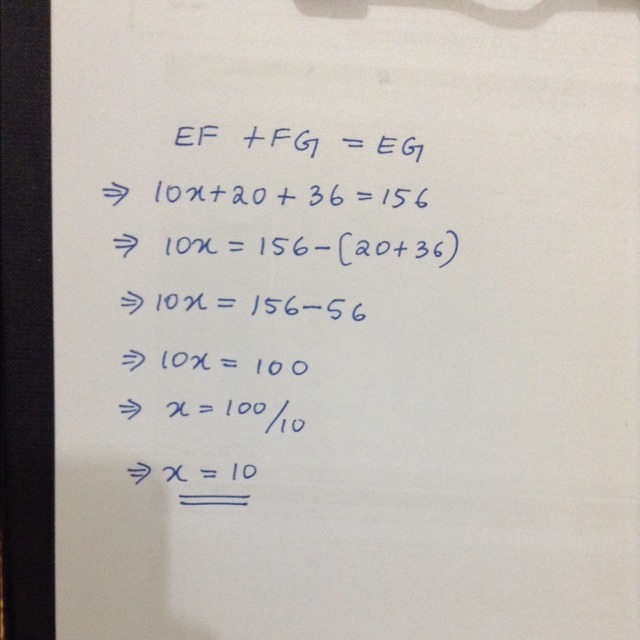 EF + FG = EG
⇒ 10x + 20 + 36 = 156
⇒ 10x = 156 - (20 + 36)
⇒ 10x = 156 - 56
⇒ 10x = 100
⇒ x = 100/10
⇒ x = 10